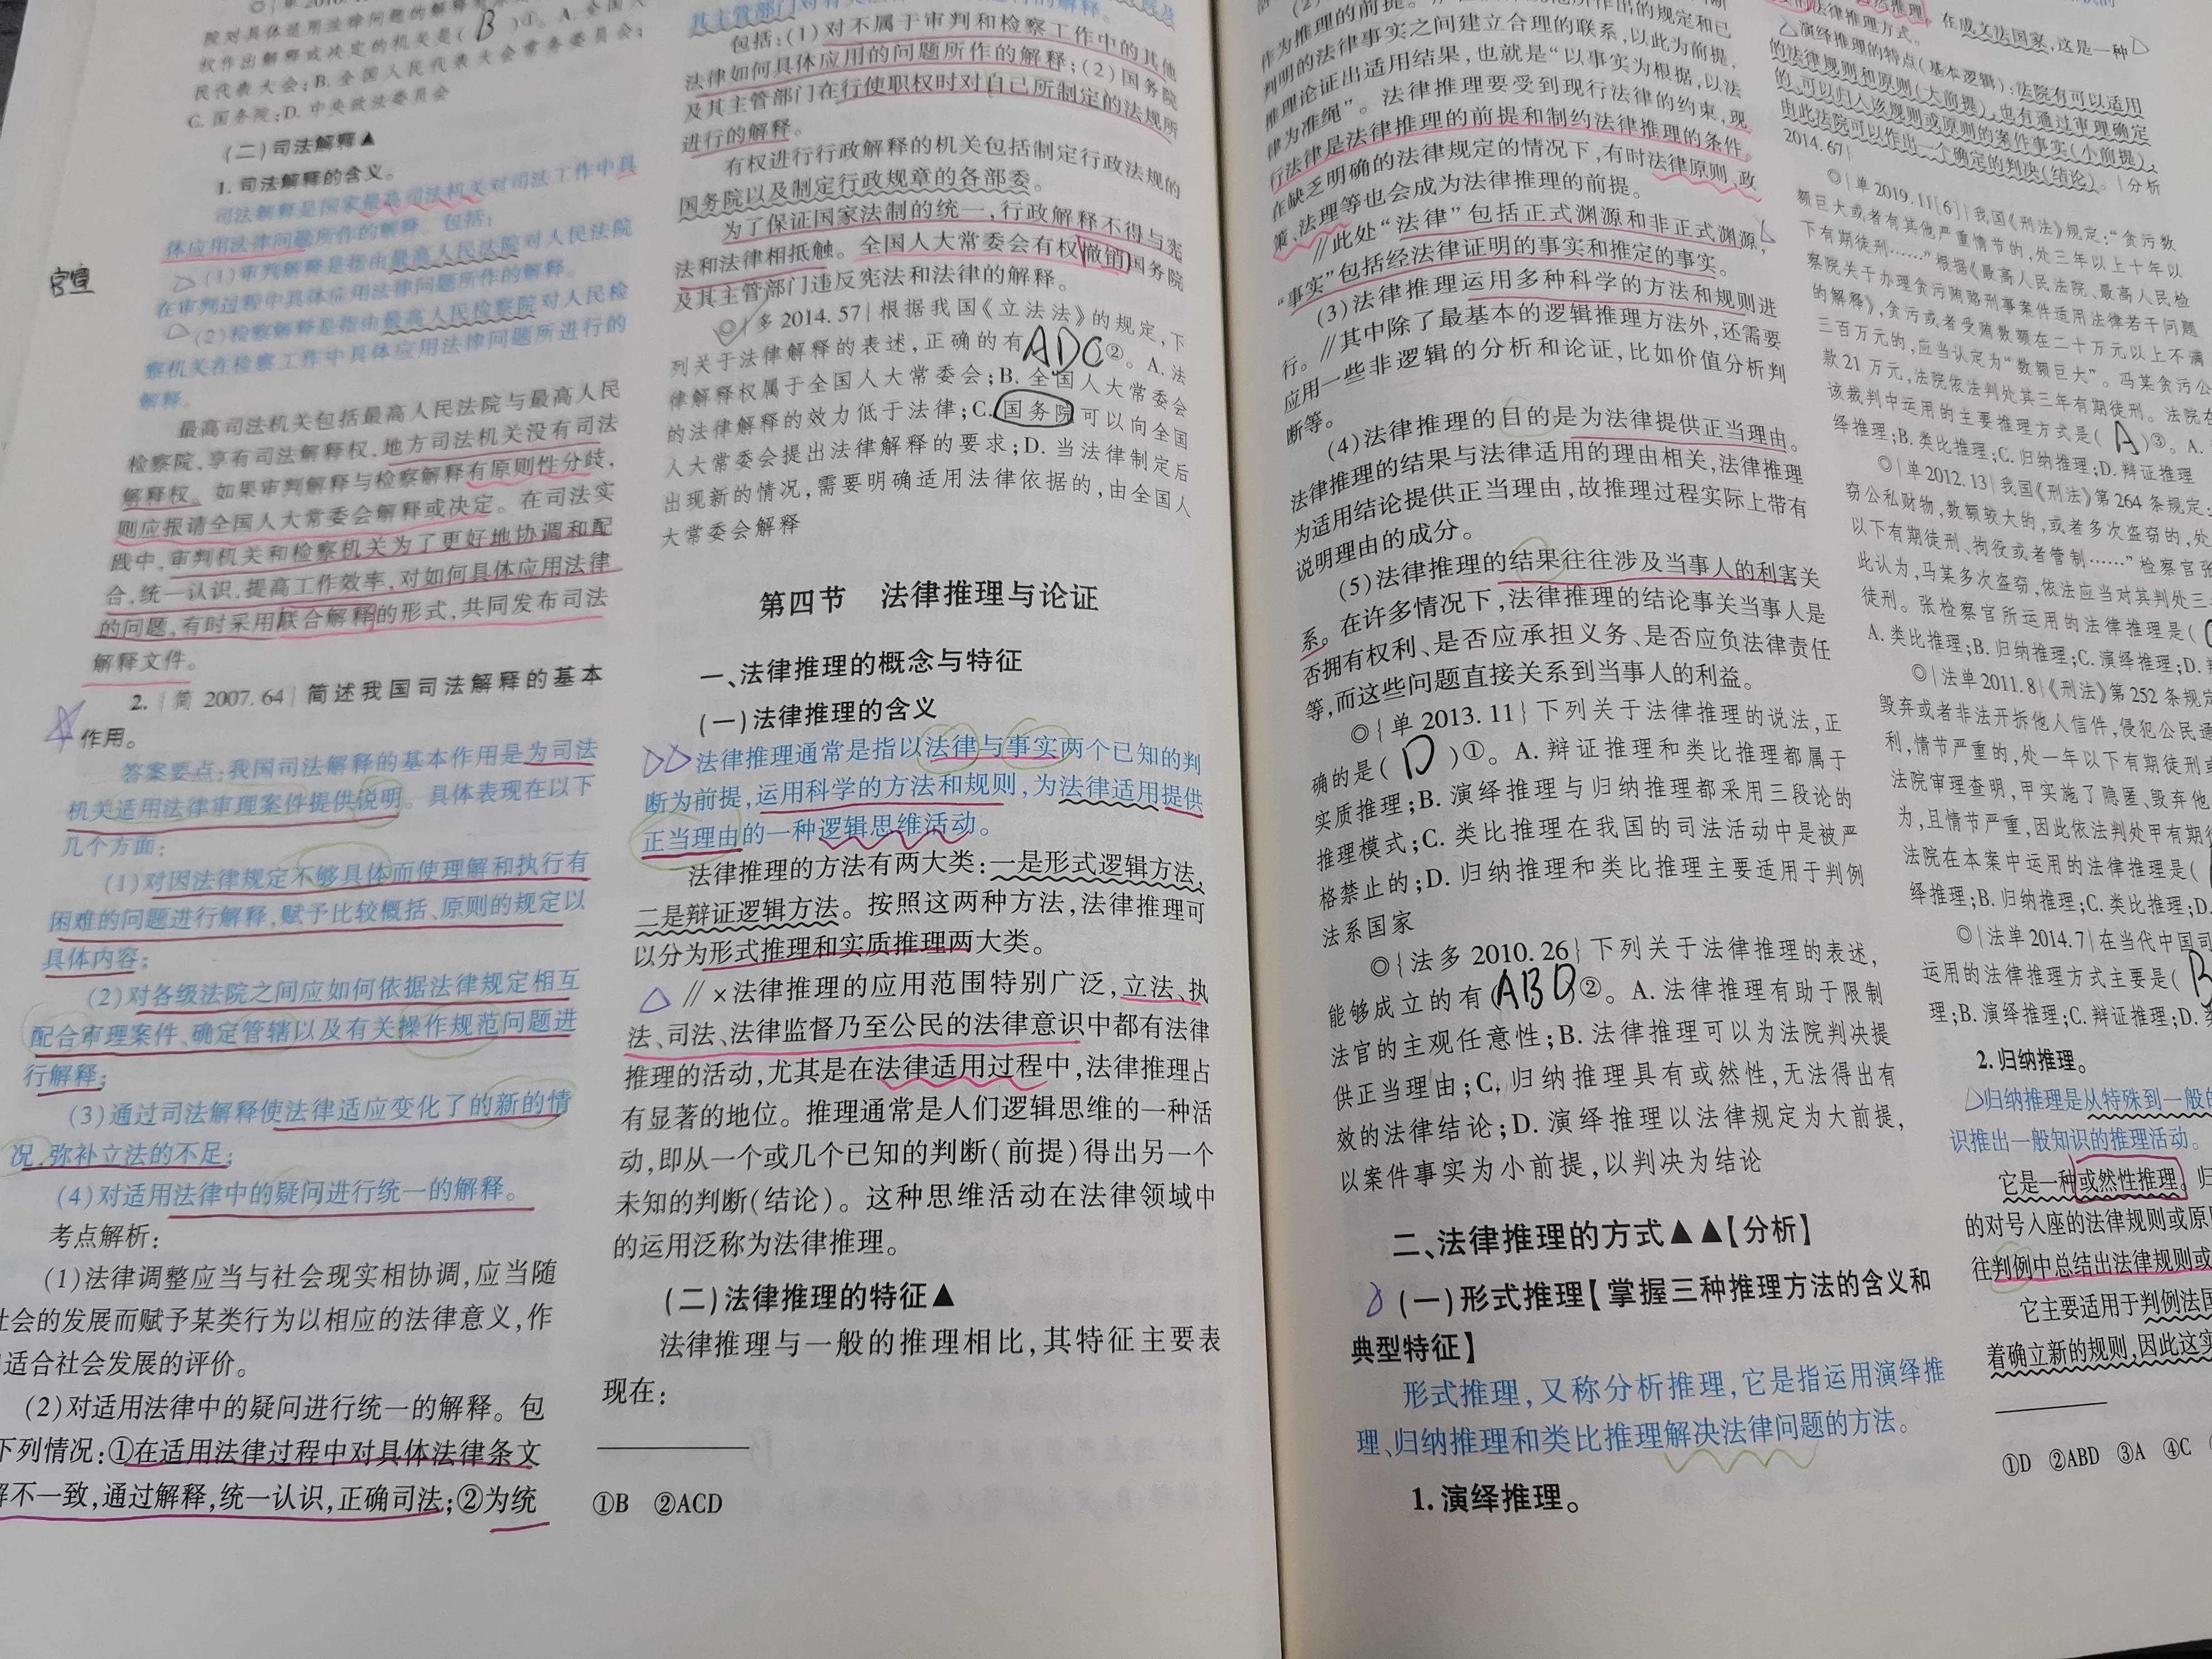 院对具体是用法律问题的解释
权作出解释或决定的机关是( B )①。A. 全国人
民代表大会;B. 全国人民代表大会常务委员会;
C. 国务院;D. 中央政法委员会
(二)司法解释▲
1. 司法解释的含义。
司法解释是国家最高司法机关对司法工作中具
体应用法律问题所作的解释。包括:
(1)审判解释是指由最高人民法院对人民法院
在审判过程中具体应用法律问题所作的解释。
官宣
(2)检察解释是指由最高人民检察院对人民检
察机关在检察工作中具体应用法律问题所进行的
解释。
最高司法机关包括最高人民法院与最高人民
检察院,享有司法解释权,地方司法机关没有司法
解释权。如果审判解释与检察解释有原则性分歧,
则应报请全国人大常委会解释或决定。在司法实
践中,审判机关和检察机关为了更好地协调和配
合,统一认识,提高工作效率,对如何具体应用法律
的问题,有时采用联合解释的形式,共同发布司法
解释文件。
2. |简 2007. 64| 简述我国司法解释的基本
作用。
答案要点:我国司法解释的基本作用是为司法
机关适用法律审理案件提供说明。具体表现在以下
几个方面:
(1)对因法律规定不够具体而使理解和执行有
困难的问题进行解释,赋予比较概括、原则的规定以
具体内容;
(2)对各级法院之间应如何依据法律规定相互
配合审理案件、确定管辖以及有关操作规范问题进
行解释;
(3)通过司法解释使法律适应变化了的新的情
况,弥补立法的不足;
(4)对适用法律中的疑问进行统一的解释。
考点解析:
(1)法律调整应当与社会现实相协调,应当随
社会的发展而赋予某类行为以相应的法律意义,作
适合社会发展的评价。
(2)对适用法律中的疑问进行统一的解释。包
下列情况:①在适用法律过程中对具体法律条文
解不一致,通过解释,统一认识,正确司法;②为统
包括:(1)对不属于审判和检察工作中的其他
法律如何具体应用的问题所作的解释;(2)国务院
及其主管部门在行使职权时对自己所制定的法规所
进行的解释。
有权进行行政解释的机关包括制定行政法规的
国务院以及制定行政规章的各部委。
为了保证国家法制的统一,行政解释不得与宪
法和法律相抵触。全国人大常委会有权撤销国务院
及其主管部门违反宪法和法律的解释。
◎|多 2014. 57| 根据我国《立法法》的规定,下
列关于法律解释的表述,正确的有 ADC ②。A. 法
律解释权属于全国人大常委会;B. 全国人大常委会
的法律解释的效力低于法律;C. 国务院可以向全国
人大常委会提出法律解释的要求;D. 当法律制定后
出现新的情况,需要明确适用法律依据的,由全国人
大常委会解释
第四节 法律推理与论证
一、法律推理的概念与特征
(一)法律推理的含义
法律推理通常是指以法律与事实两个已知的判
断为前提,运用科学的方法和规则,为法律适用提供
正当理由的一种逻辑思维活动。
法律推理的方法有两大类:一是形式逻辑方法,
二是辩证逻辑方法。按照这两种方法,法律推理可
以分为形式推理和实质推理两大类。
∥×法律推理的应用范围特别广泛,立法、执
法、司法、法律监督乃至公民的法律意识中都有法律
推理的活动,尤其是在法律适用过程中,法律推理占
有显著的地位。推理通常是人们逻辑思维的一种活
动,即从一个或几个已知的判断(前提)得出另一个
未知的判断(结论)。这种思维活动在法律领域中
的运用泛称为法律推理。
(二)法律推理的特征▲
法律推理与一般的推理相比,其特征主要表
现在:
①B ②ACD
作为推理的前提。
判明的法律事实之间建立合理的联系,以此为前提,
推理论证出适用结果,也就是“以事实为根据,以法
律为准绳”。法律推理要受到现行法律的约束,现
行法律是法律推理的前提和制约法律推理的条件。
在缺乏明确的法律规定的情况下,有时法律原则、政
策、法理等也会成为法律推理的前提。
∥此处“法律”包括正式渊源和非正式渊源,
“事实”包括经法律证明的事实和推定的事实。
(3)法律推理运用多种科学的方法和规则进
行。∥其中除了最基本的逻辑推理方法外,还需要
应用一些非逻辑的分析和论证,比如价值分析判
断等。
(4)法律推理的目的是为法律提供正当理由。
法律推理的结果与法律适用的理由相关,法律推理
为适用结论提供正当理由,故推理过程实际上带有
说明理由的成分。
(5)法律推理的结果往往涉及当事人的利害关
系。在许多情况下,法律推理的结论事关当事人是
否拥有权利、是否应承担义务、是否应负法律责任
等,而这些问题直接关系到当事人的利益。
◎{单 2013. 11}下列关于法律推理的说法,正
确的是( D )①。A. 辩证推理和类比推理都属于
实质推理;B. 演绎推理与归纳推理都采用三段论的
推理模式;C. 类比推理在我国的司法活动中是被严
格禁止的;D. 归纳推理和类比推理主要适用于判例
法系国家
◎{法多 2010. 26}下列关于法律推理的表述,
能够成立的有(ABD)②。A. 法律推理有助于限制
法官的主观任意性;B. 法律推理可以为法院判决提
供正当理由;C. 归纳推理具有或然性,无法得出有
效的法律结论;D. 演绎推理以法律规定为大前提,
以案件事实为小前提,以判决为结论
二、法律推理的方式▲▲【分析】
(一)形式推理【掌握三种推理方法的含义和
典型特征】
形式推理,又称分析推理,它是指运用演绎推
理、归纳推理和类比推理解决法律问题的方法。
1. 演绎推理。
的法律推理方式。在成文法国家,这是一种
演绎推理的特点(基本逻辑):法院有可以适用
的法律规则和原则(大前提),也有通过审理确定
的、可以归入该规则或原则的案件事实(小前提),
由此法院可以作出一个确定的判决(结论)。|分析
2014. 67|
◎|单 2019. 11[6]|我国《刑法》规定:“贪污数
额巨大或者有其他严重情节的,处三年以上十年以
下有期徒刑……”根据《最高人民法院、最高人民检
察院关于办理贪污贿赂刑事案件适用法律若干问题
的解释》,贪污或者受贿数额在二十万元以上不满
三百万元的,应当认定为“数额巨大”。冯某贪污公
款 21 万元,法院依法判处其三年有期徒刑。法院在
该裁判中运用的主要推理方式是( A )③。A.
绎推理;B. 类比推理;C. 归纳推理;D. 辩证推理
◎|单 2012. 13|我国《刑法》第 264 条规定:
窃公私财物,数额较大的,或者多次盗窃的,处
以下有期徒刑、拘役或者管制……”检察官张
此认为,马某多次盗窃,依法应当对其判处三
徒刑。张检察官所运用的法律推理是(
A. 类比推理;B. 归纳推理;C. 演绎推理;D.
◎|法单 2011. 8|《刑法》第 252 条规定
毁弃或者非法开拆他人信件,侵犯公民通
利,情节严重的,处一年以下有期徒刑或
法院审理查明,甲实施了隐匿、毁弃他
为,且情节严重,因此依法判处甲有期徒
法院在本案中运用的法律推理是(
绎推理;B. 归纳推理;C. 类比推理;D.
◎|法单 2014. 7|在当代中国司
运用的法律推理方式主要是( B
理;B. 演绎推理;C. 辩证推理;D.
2. 归纳推理。
归纳推理是从特殊到一般的
识推出一般知识的推理活动。
它是一种或然性推理。归
的对号入座的法律规则或原则
往判例中总结出法律规则或
它主要适用于判例法国
着确立新的规则,因此这实
①D ②ABD ③A ④C